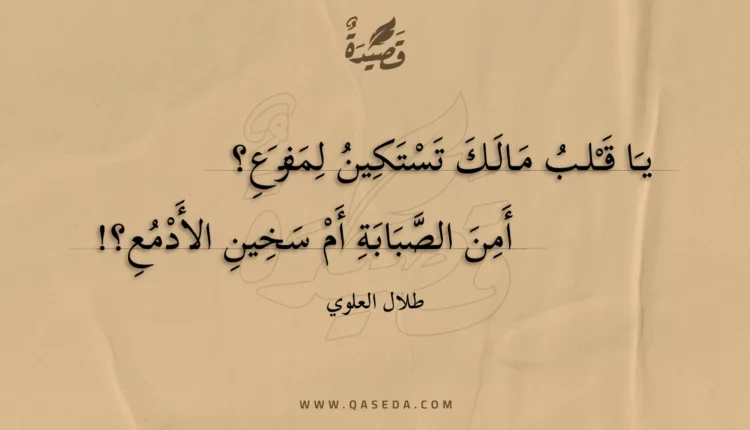 قَصِيْدَةٌ
يَا قَلْبُ مَالَكَ تَسْتَكِينُ لِمَفزَعِ؟
أَمِنَ الصَّبَابَةِ أَمْ سَخِينِ الأَدْمُعِ؟!
طلال العلوي
WWW.QASEDA.COM